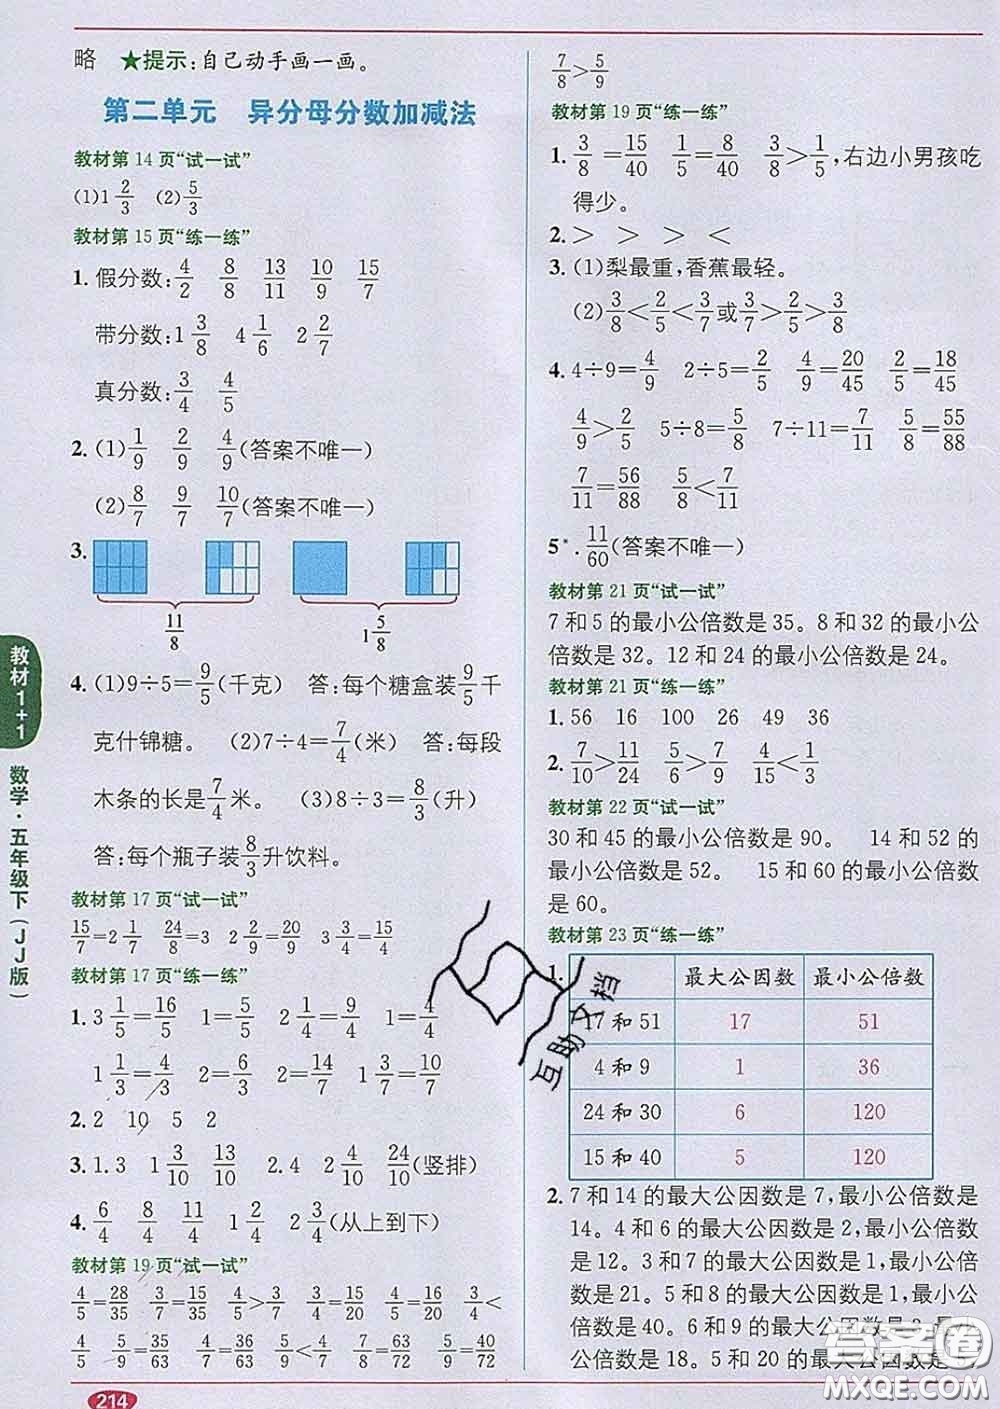 略 ★提示:自己动手画一画。
第二单元 异分母分数加减法
教材第14页“试一试”
(1)1 2/3 (2)5/3
教材第15页“练一练”
1. 假分数: 4/2 8/8 13/11 10/9 15/7
带分数: 1 3/8 4 1/6 2 2/7
真分数: 3/4 4/5
2. (1) 1/9 2/9 4/9 (答案不唯一)
(2) 8/7 9/7 10/7 (答案不唯一)
3.
11/8 1 5/8
4. (1)9÷5=9/5(千克) 答:每个糖盒装9/5千
克什锦糖。 (2)7÷4=7/4(米) 答:每段
木条的长是7/4米。 (3)8÷3=8/3(升)
答:每个瓶子装8/3升饮料。
教材第17页“试一试”
15/7=2 1/7 24/8=3 2 2/9=20/9 3 3/4=15/4
教材第17页“练一练”
1. 3 1/5=16/5 1=5/5 2 1/4=9/4 1=4/4
1 1/3=4/3 2=6/3 1 1/7=8/7 1 3/7=10/7
2. 2 10 5 2
3. 1.3 1 3/10 13/10 2.4 2 4/10 24/10 (竖排)
4. 6/4 8/4 11/4 1 2/4 2 3/4 (从上到下)
教材第19页“试一试”
4/5=28/35 3/7=15/35 4/5>3/7 3/4=15/20 4/5=16/20 3/4<
4/5 5/9=35/63 4/7=36/63 5/9<4/7 7/8=63/72 5/9=40/72
7/8>5/9
教材第19页“练一练”
1. 3/8=15/40 1/5=8/40 3/8>1/5,右边小男孩吃
得少。
2. > > > <
3. (1)梨最重,香蕉最轻。
(2)3/8<2/5<3/7或3/7>2/5>3/8
4. 4÷9=4/9 2÷5=2/5 4/9=20/45 2/5=18/45
4/9>2/5 5÷8=5/8 7÷11=7/11 5/8=55/88
7/11=56/88 5/8<7/11
5*. 11/60(答案不唯一)
教材第21页“试一试”
7和5的最小公倍数是35。8和32的最小公
倍数是32。12和24的最小公倍数是24。
教材第21页“练一练”
1. 56 16 100 26 49 36
2. 7/10>11/24 5/6>7/9 4/15<1/2
教材第22页“试一试”
30和45的最小公倍数是90。 14和52的
最小公倍数是52。 15和60的最小公倍数
是60。
教材第23页“练一练”
1. 最大公因数 最小公倍数
17和51 17 51
4和9 1 36
24和30 6 120
15和40 5 120
2. 7和14的最大公因数是7,最小公倍数是
14。4和6的最大公因数是2,最小公倍数
是12。3和7的最大公因数是1,最小公倍
数是21。5和8的最大公因数是1,最小公
倍数是40。6和9的最大公因数是3,最小
公倍数是18。5和20的最大公因数是
教材1+1
数学·五年级下(JJ版)
214
互助文档
答案圈
MXQE.COM